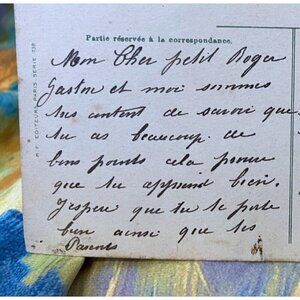 Partie réservée à la correspondance.
Mon Cher petit Roger
Gaston et moi sommes
tres content de savoir que
tu as beaucoup de
bons points cela prouve
que tu apprend bien.
J'espere que tu te porte
bien ainsi que tes
Parents
EDITEUR, PARIS SERIE